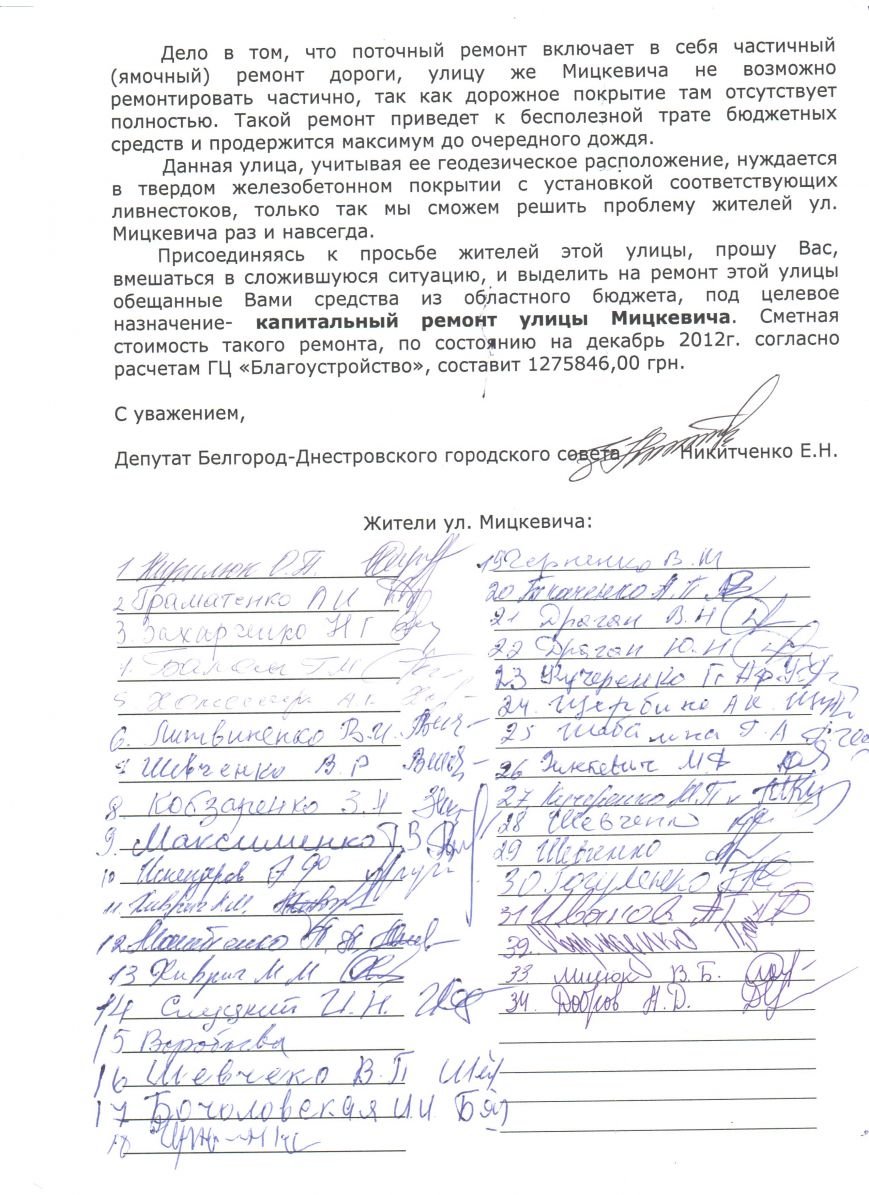 Дело в том, что поточный ремонт включает в себя частичный
(ямочный) ремонт дороги, улицу же Мицкевича не возможно
ремонтировать частично, так как дорожное покрытие там отсутствует
полностью. Такой ремонт приведет к бесполезной трате бюджетных
средств и продержится максимум до очередного дождя.
Данная улица, учитывая ее геодезическое расположение, нуждается
в твердом железобетонном покрытии с установкой соответствующих
ливнестоков, только так мы сможем решить проблему жителей ул.
Мицкевича раз и навсегда.
Присоединяясь к просьбе жителей этой улицы, прошу Вас,
вмешаться в сложившуюся ситуацию, и выделить на ремонт этой улицы
обещанные Вами средства из областного бюджета, под целевое
назначение- капитальный ремонт улицы Мицкевича. Сметная
стоимость такого ремонта, по состоянию на декабрь 2012г. согласно
расчетам ГЦ «Благоустройство», составит 1275846,00 грн.
С уважением,
Депутат Белгород-Днестровского городского совета Никитченко Е.Н.
Жители ул. Мицкевича:
1 О.П.
2. Граматенко
3. Захарченко Н Г
4
5.
6. Литвиненко В.И.
7 Шевченко В. Р
8 Кобзаренко З.И
9. Максименко В
10
11.
12
13 Хиврич М М
14 Слуцкий И. Н.
15 Воробьева
16 Шевчеко В.П
17 Бочоловская И.И
18
19 В.
20 Ткаченко А.П
21 Драган В.Н
22 Драган Ю.Н
23 Кучеренко
24. Щербина А
25 Г. А
26 Зинкевич М.
27
28 Шевченко
29 Шевченко
30
31 Иванов
32.
33 Милюк В.Б.
34. Добров Н.D.